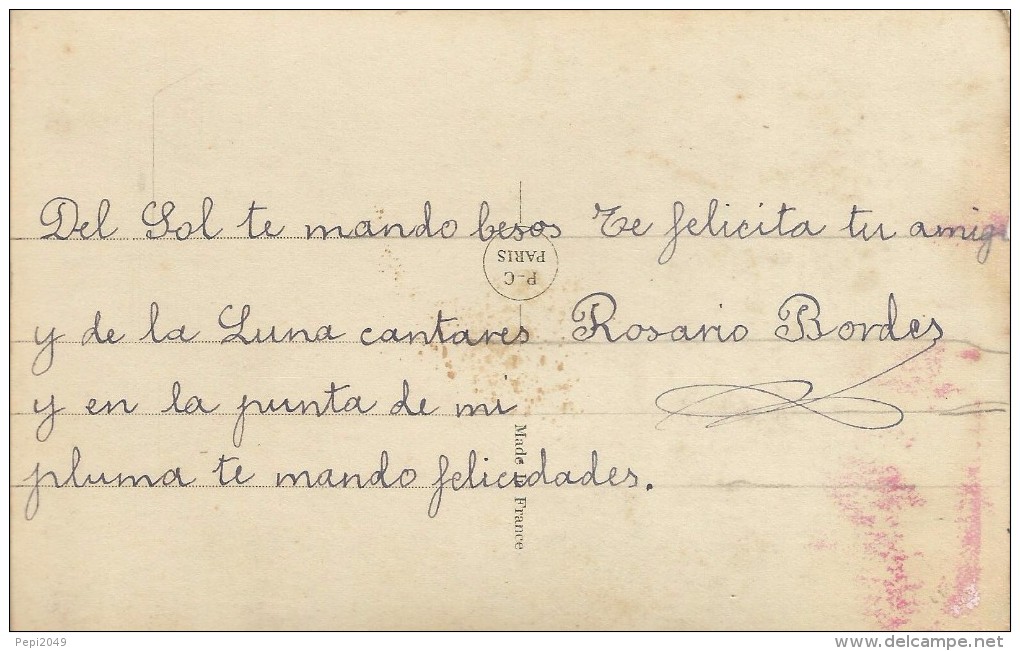 Del Sol te mando besos
y de la Luna cantares
y en la punta de mi
pluma te mando felicidades.
Te felicita tu amiga
Rosario Bordes
P-C
PARIS
Made in France
Pepi2049
www.delcampe.net